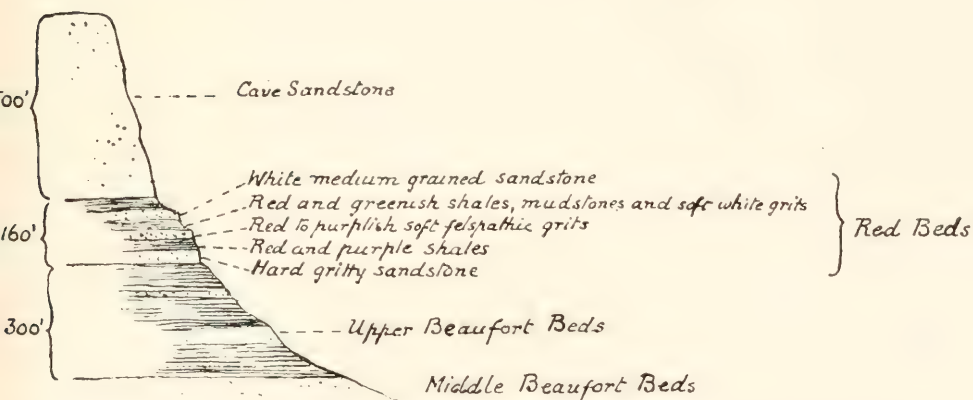 Cave Sandstone
White medium grained sandstone
Red and greenish shales, mudstones and soft white grits
Red to purplish soft felspathic grits
Red Beds
160'
Red and purple shales
Hard gritty sandstone
300'
Upper Beaufort Beds
Middle Beaufort Beds